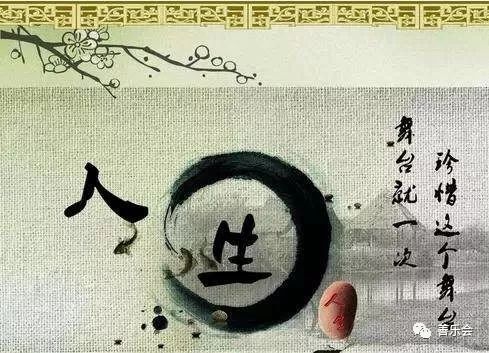 人生
珍惜这个舞台
舞台就一次
人生
善乐会